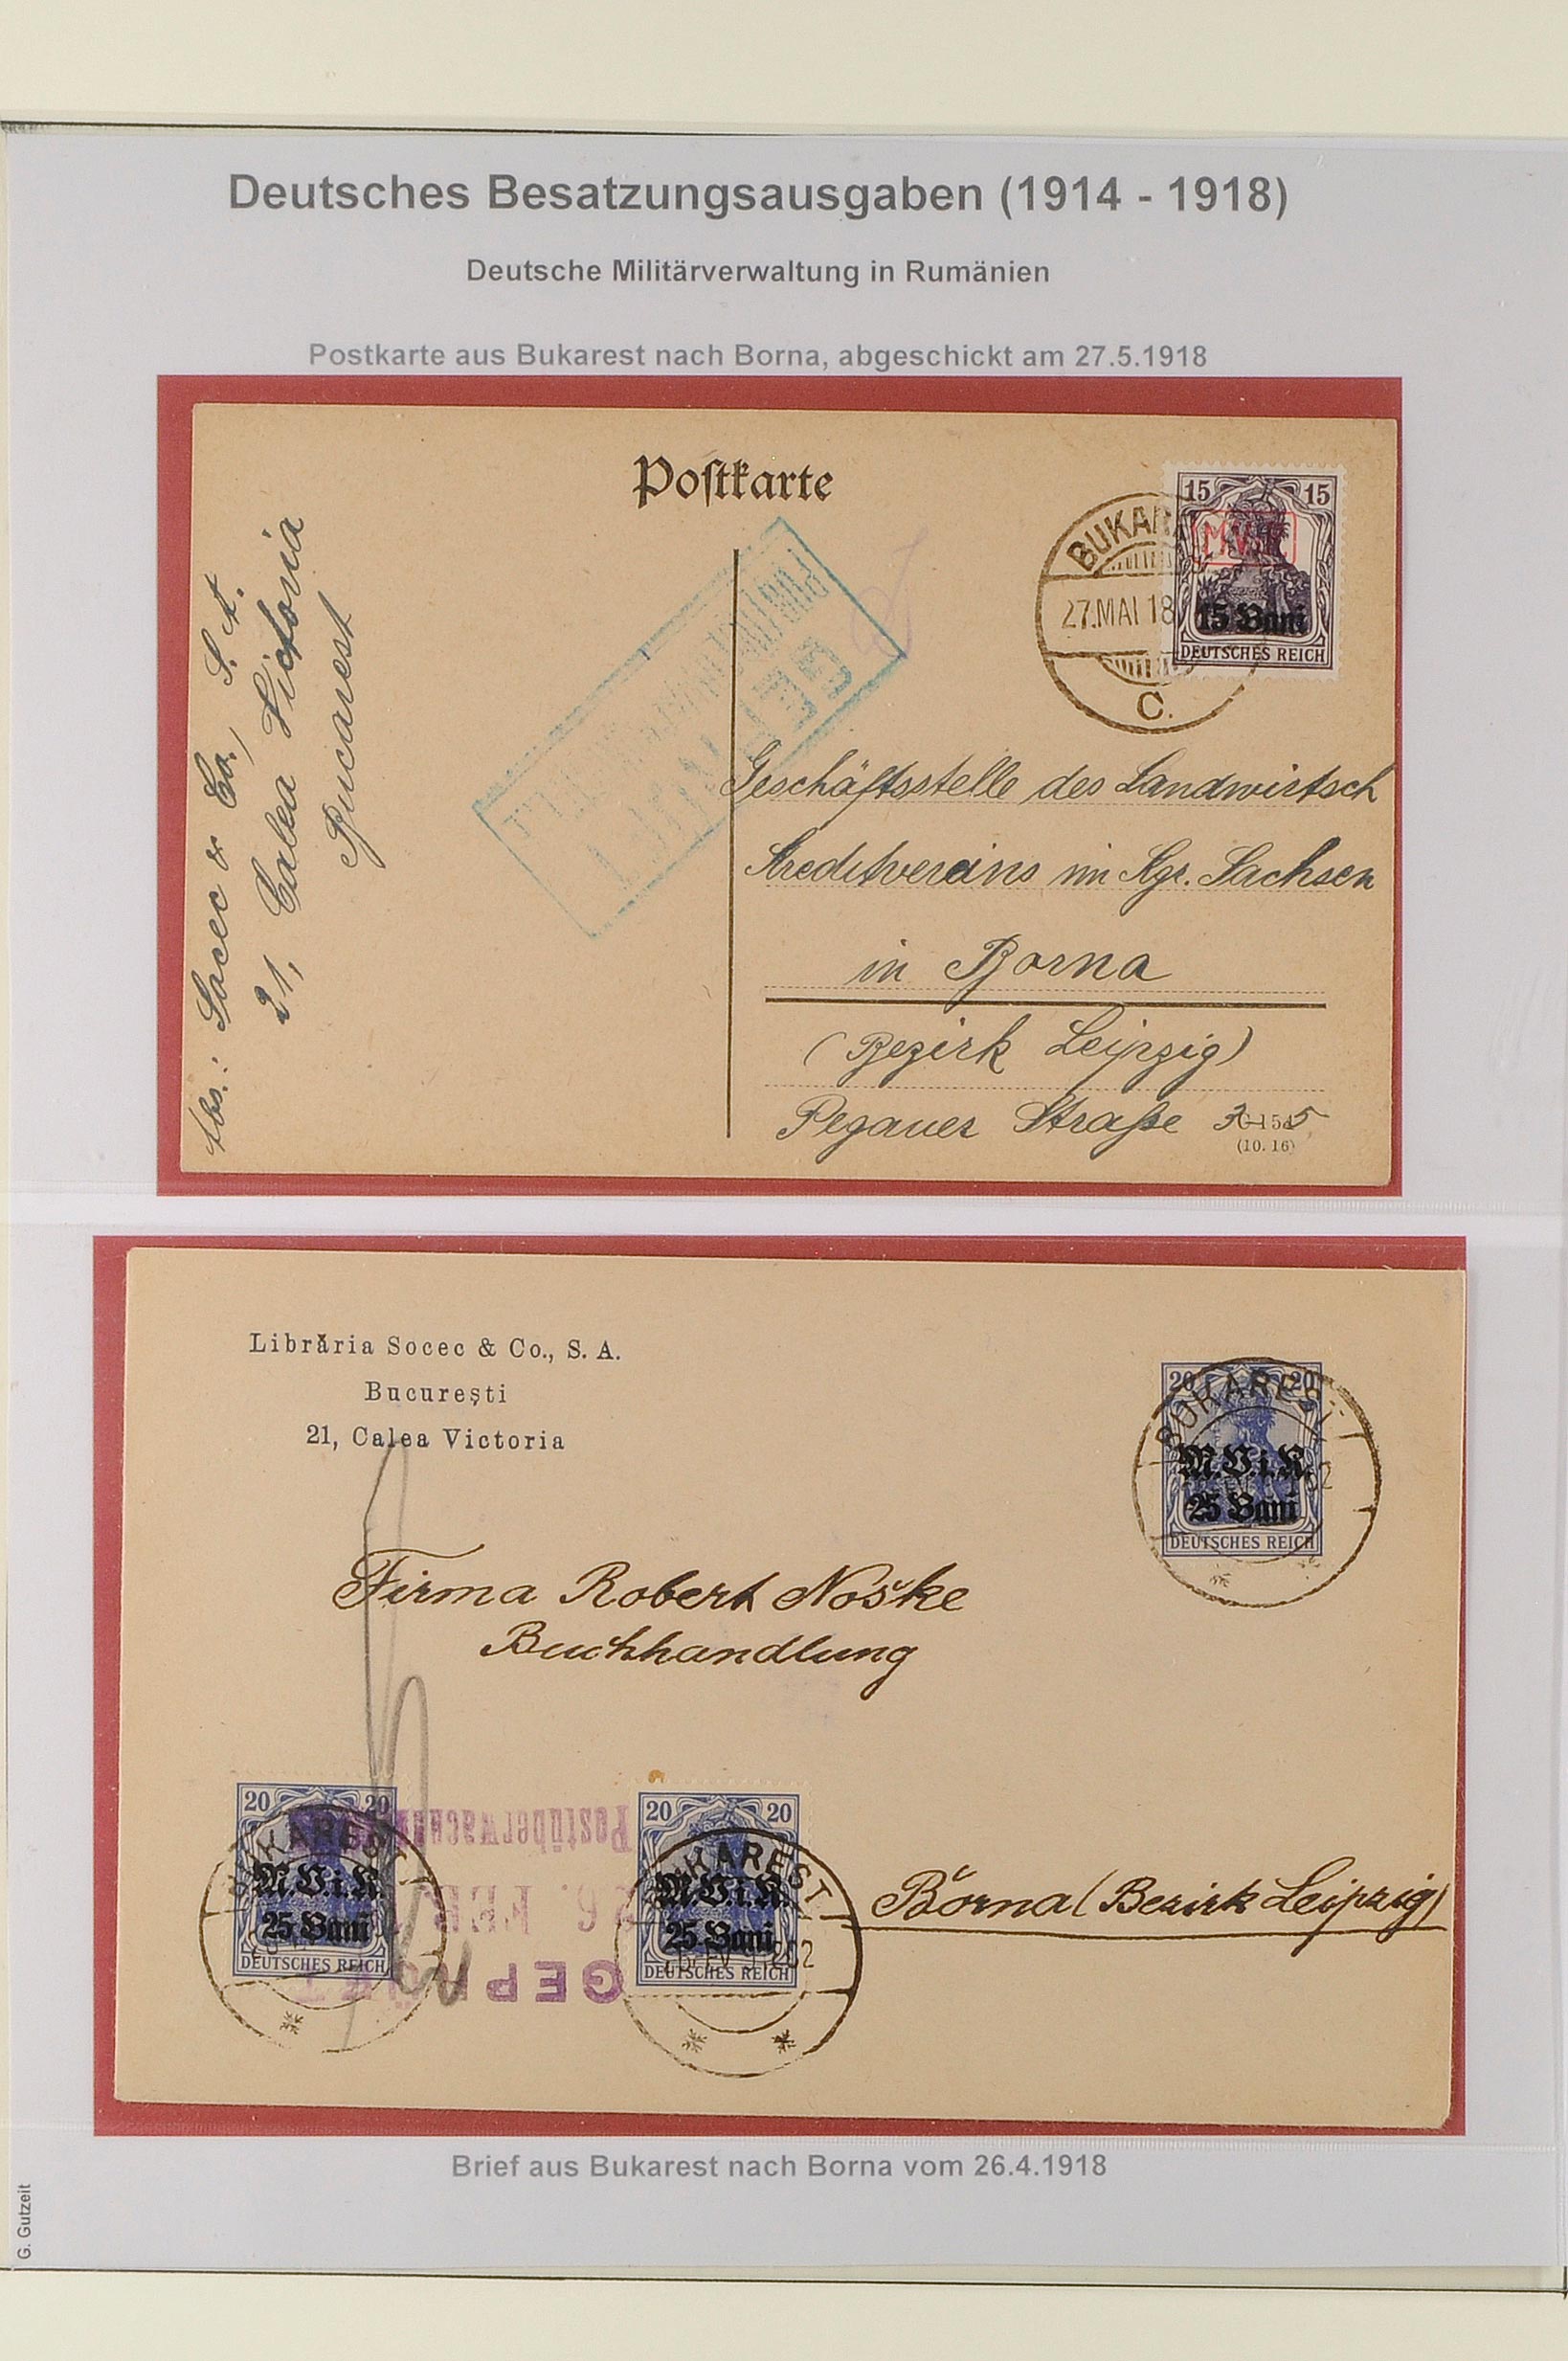 Deutsches Besatzungsausgaben (1914 - 1918)
Deutsche Militärverwaltung in Rumänien
Postkarte aus Bukarest nach Borna, abgeschickt am 27.5.1918
Postkarte
15 15
MViR
15 Bani
DEUTSCHES REICH
BUKAR
27.MAI 18
C.
Abs.: Socec & Co., S. A.
21, Calea Victoria
Bucarest
Geschäftsstelle des Landwirtsch
Kreditvereins im Kgr. Sachsen
in Borna
(Bezirk Leipzig)
Pegauer Straße
(10. 16)
Librăria Socec & Co., S. A.
București
21, Calea Victoria
20 20
BUKAREST
M.V.i.R.
25 Bani
DEUTSCHES REICH
Firma Robert Noske
Buchhandlung
20 20
BUKAREST
M.V.i.R.
25 Bani
DEUTSCHES REICH
Postüberwachung
26. FEB
GEPRÜFT
20 20
BUKAREST
M.V.i.R.
25 Bani
DEUTSCHES REICH
Borna (Bezirk Leipzig)
Brief aus Bukarest nach Borna vom 26.4.1918
G. Gutzeit